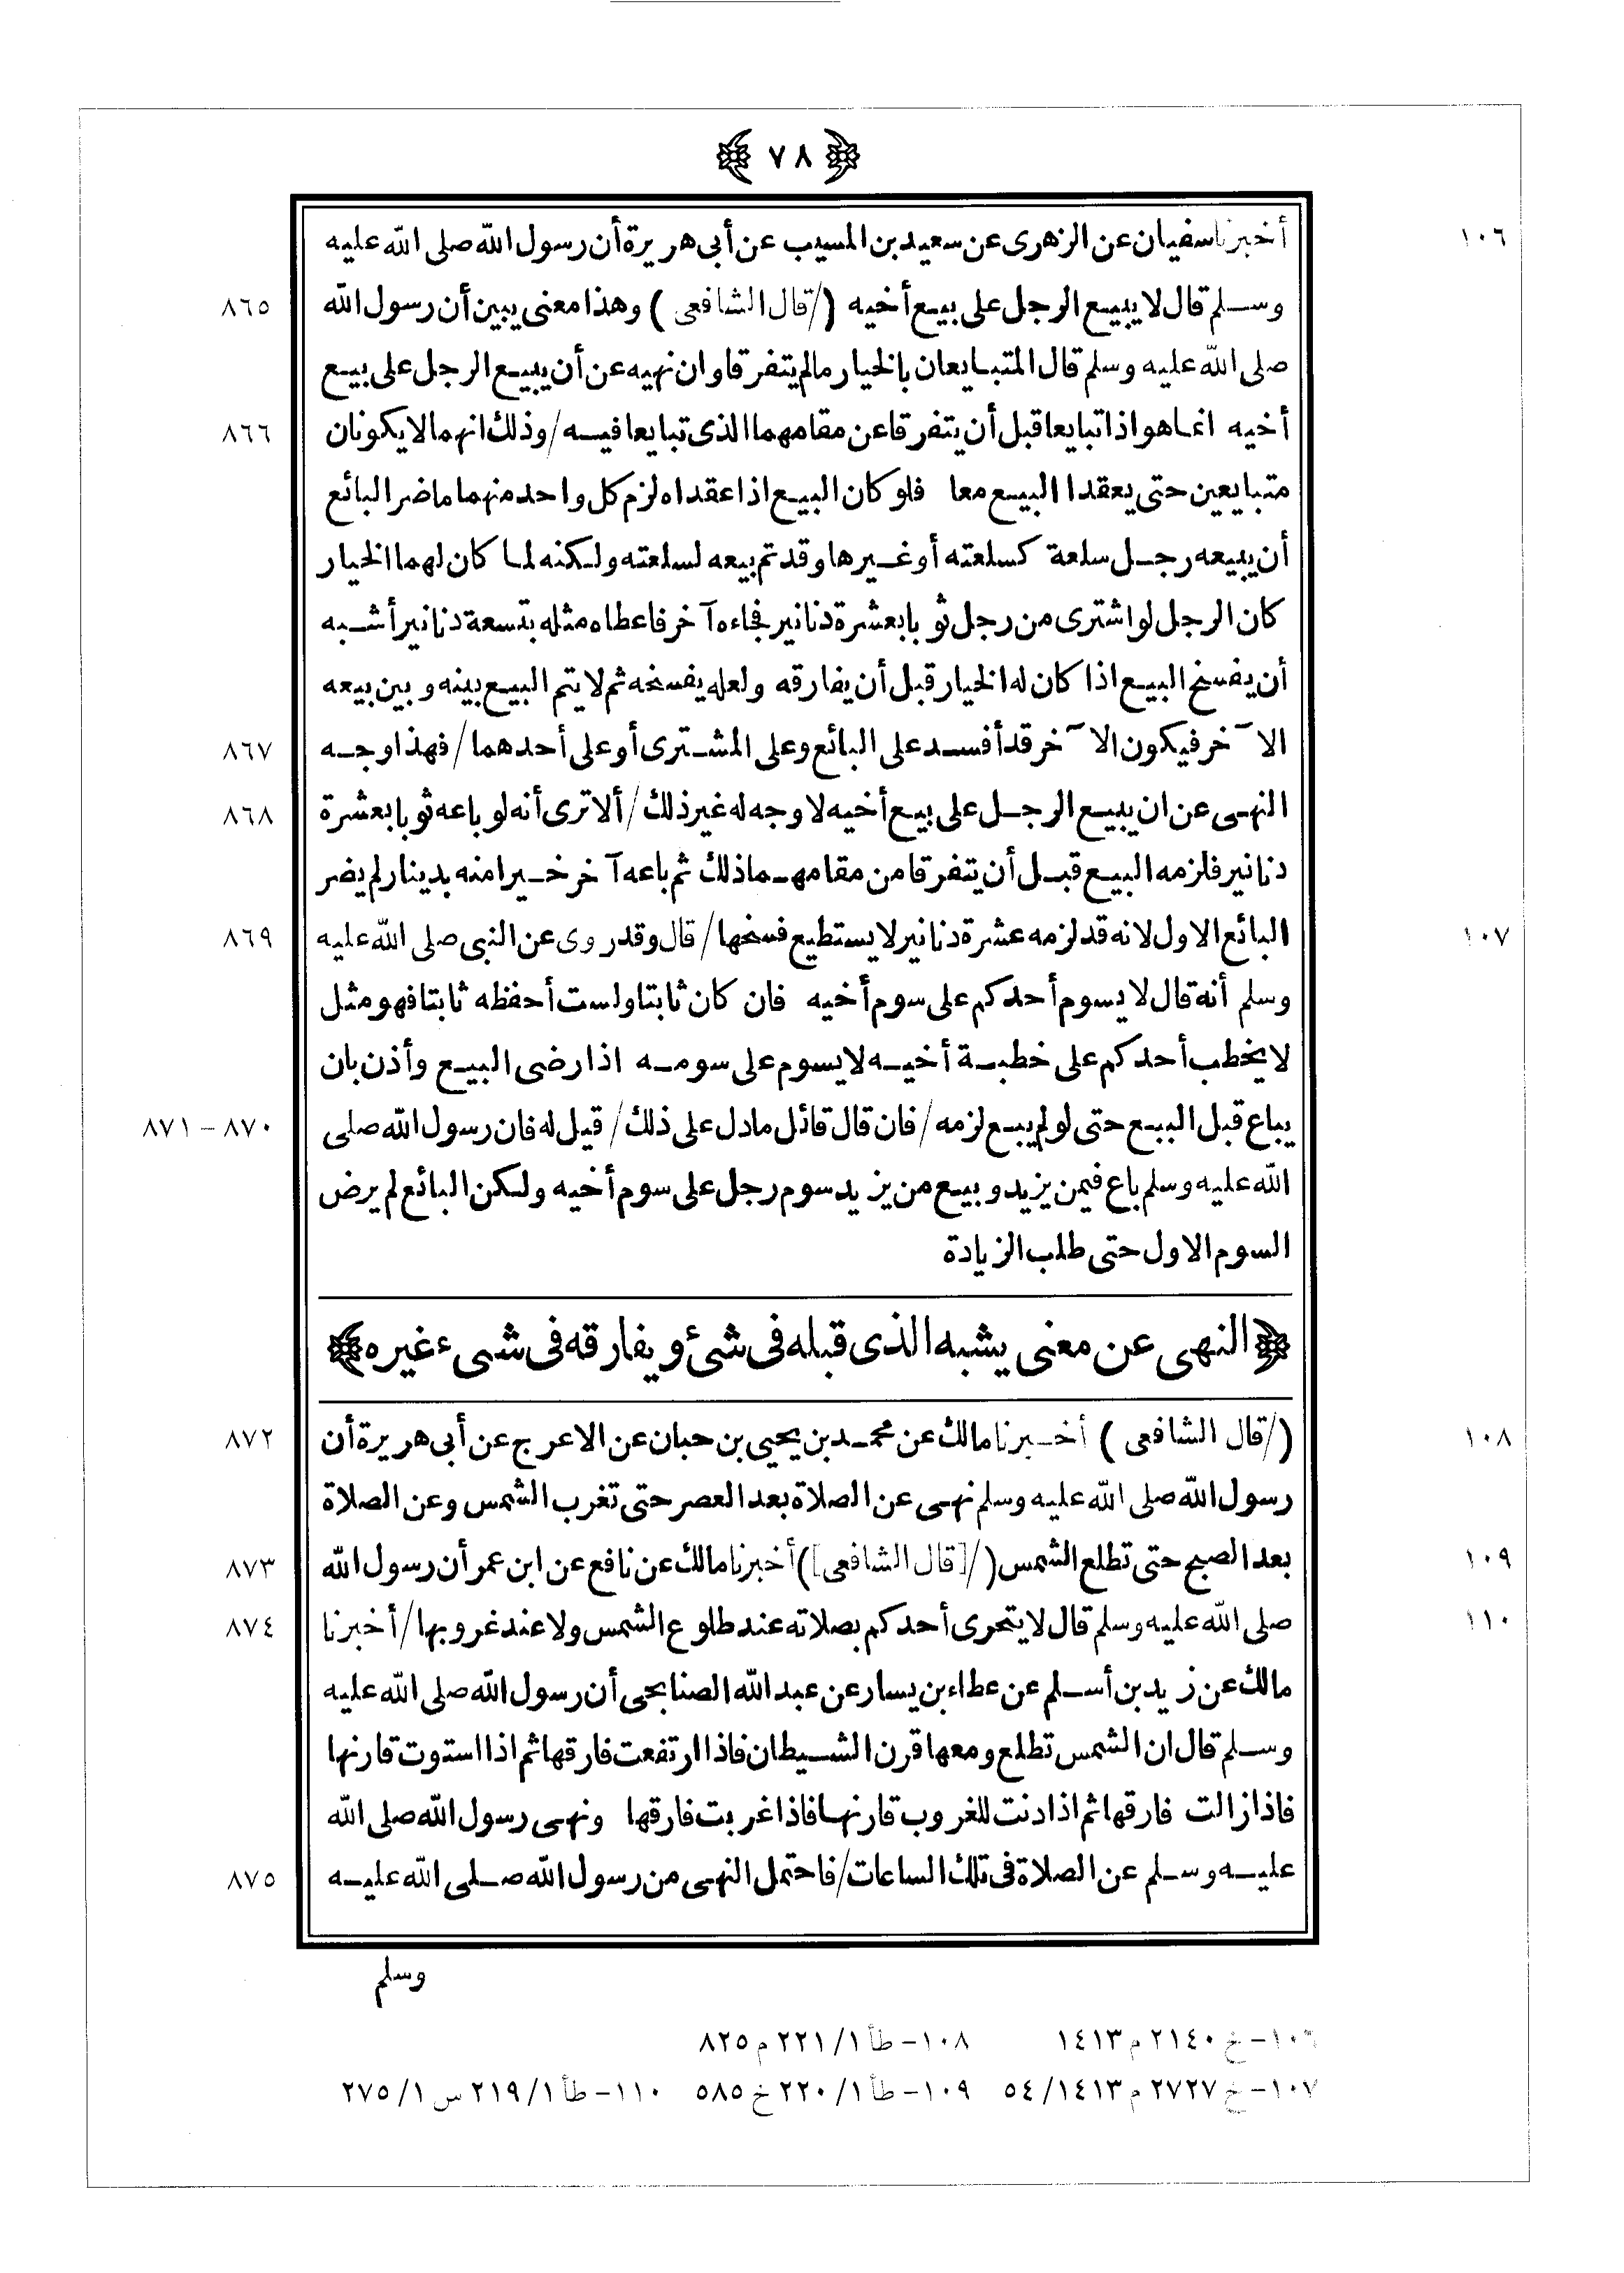 ٧٨
١٠٦
أخبرنا سفيان عن الزهرى عن سعيد بن المسيب عن أبى هريرة أن رسول الله صلى الله عليه
وسلم قال لا يبيع الرجل على بيع أخيه (/قال الشافعى) وهذا معنى يبين أن رسول الله
٨٦٥
صلى الله عليه وسلم قال المتبايعان بالخيار مالم يتفرقا وان نهيه عن أن يبيع الرجل على بيع
أخيه انما هو اذا تبايعا قبل أن يتفرقا عن مقامهما الذى تبايعا فيه/وذلك انهما لا يكونان
٨٦٦
متبايعين حتى يعقدا البيع معا فلو كان البيع اذا عقداه لزم كل واحد منهما ما ضر البائع
أن يبيعه رجل سلعة كسلعته أو غيرها وقد تم بيعه لسلعته ولكنه لما كان لهما الخيار
كان الرجل لو اشترى من رجل ثوبا بعشرة دنانير فجاءه آخر فاعطاه مثله بتسعة دنانير أشبه
أن يفسخ البيع اذا كان له الخيار قبل أن يفارقه ولعله يفسخه ثم لا يتم البيع بينه وبين بيعه
الآخر فيكون الآخر قد أفسد على البائع وعلى المشترى أو على أحدهما/فهذا وجه
٨٦٧
النهى عن ان يبيع الرجل على بيع أخيه لا وجه له غير ذلك/ألا ترى أنه لو باعه ثوبا بعشرة
٨٦٨
دنانير فلزمه البيع قبل أن يتفرقا من مقامهما ذلك ثم باعه آخر خيرا منه بدينار لم يضر
١٠٧
البائع الاول لانه قد لزمه عشرة دنانير لا يستطيع فسخها/قال وقد روى عن النبى صلى الله عليه
٨٦٩
وسلم أنه قال لا يسوم أحدكم على سوم أخيه فان كان ثابتا ولست أحفظه ثابتا فهو مثل
لا يخطب أحدكم على خطبة أخيه لا يسوم على سومه اذا رضى البيع وأذن بان
يباع قبل البيع حتى لو لم يبع لزمه/فان قال قائل ما دل على ذلك/قيل له فان رسول الله صلى
٨٧٠ - ٨٧١
الله عليه وسلم باع فيمن يزيد وبيع من يزيد سوم رجل على سوم أخيه ولكن البائع لم يرض
السوم الاول حتى طلب الزيادة
النهى عن معنى يشبه الذى قبله فى شئ ويفارقه فى شىء غيره
١٠٨
(/قال الشافعى) أخبرنا مالك عن محمد بن يحيى بن حبان عن الاعرج عن أبى هريرة أن
٨٧٢
رسول الله صلى الله عليه وسلم نهى عن الصلاة بعد العصر حتى تغرب الشمس وعن الصلاة
١٠٩
بعد الصبح حتى تطلع الشمس (/[قال الشافعى]) أخبرنا مالك عن نافع عن ابن عمر أن رسول الله
٨٧٣
١١٠
صلى الله عليه وسلم قال لا يتحرى أحدكم بصلاته عند طلوع الشمس ولا عند غروبها/أخبرنا
٨٧٤
مالك عن زيد بن أسلم عن عطاء بن يسار عن عبد الله الصنابحى أن رسول الله صلى الله عليه
وسلم قال ان الشمس تطلع ومعها قرن الشيطان فاذا ارتفعت فارقها ثم اذا استوت قارنها
فاذا زالت فارقها ثم اذا دنت للغروب قارنها فاذا غربت فارقها ونهى رسول الله صلى الله
عليه وسلم عن الصلاة فى تلك الساعات/فاحتمل النهى من رسول الله صلى الله عليه
٨٧٥
وسلم
١٠٦- خ ٢١٤٠ م ١٤١٣ ١٠٨- طأ ١/ ٢٢١ م ٨٢٥
١٠٧- خ ٢٧٢٧ م ١٤١٣/ ٥٤ ١٠٩- طأ ١/ ٢٢٠ خ ٥٨٥ ١١٠- طأ ١/ ٢١٩ س ١/ ٢٧٥